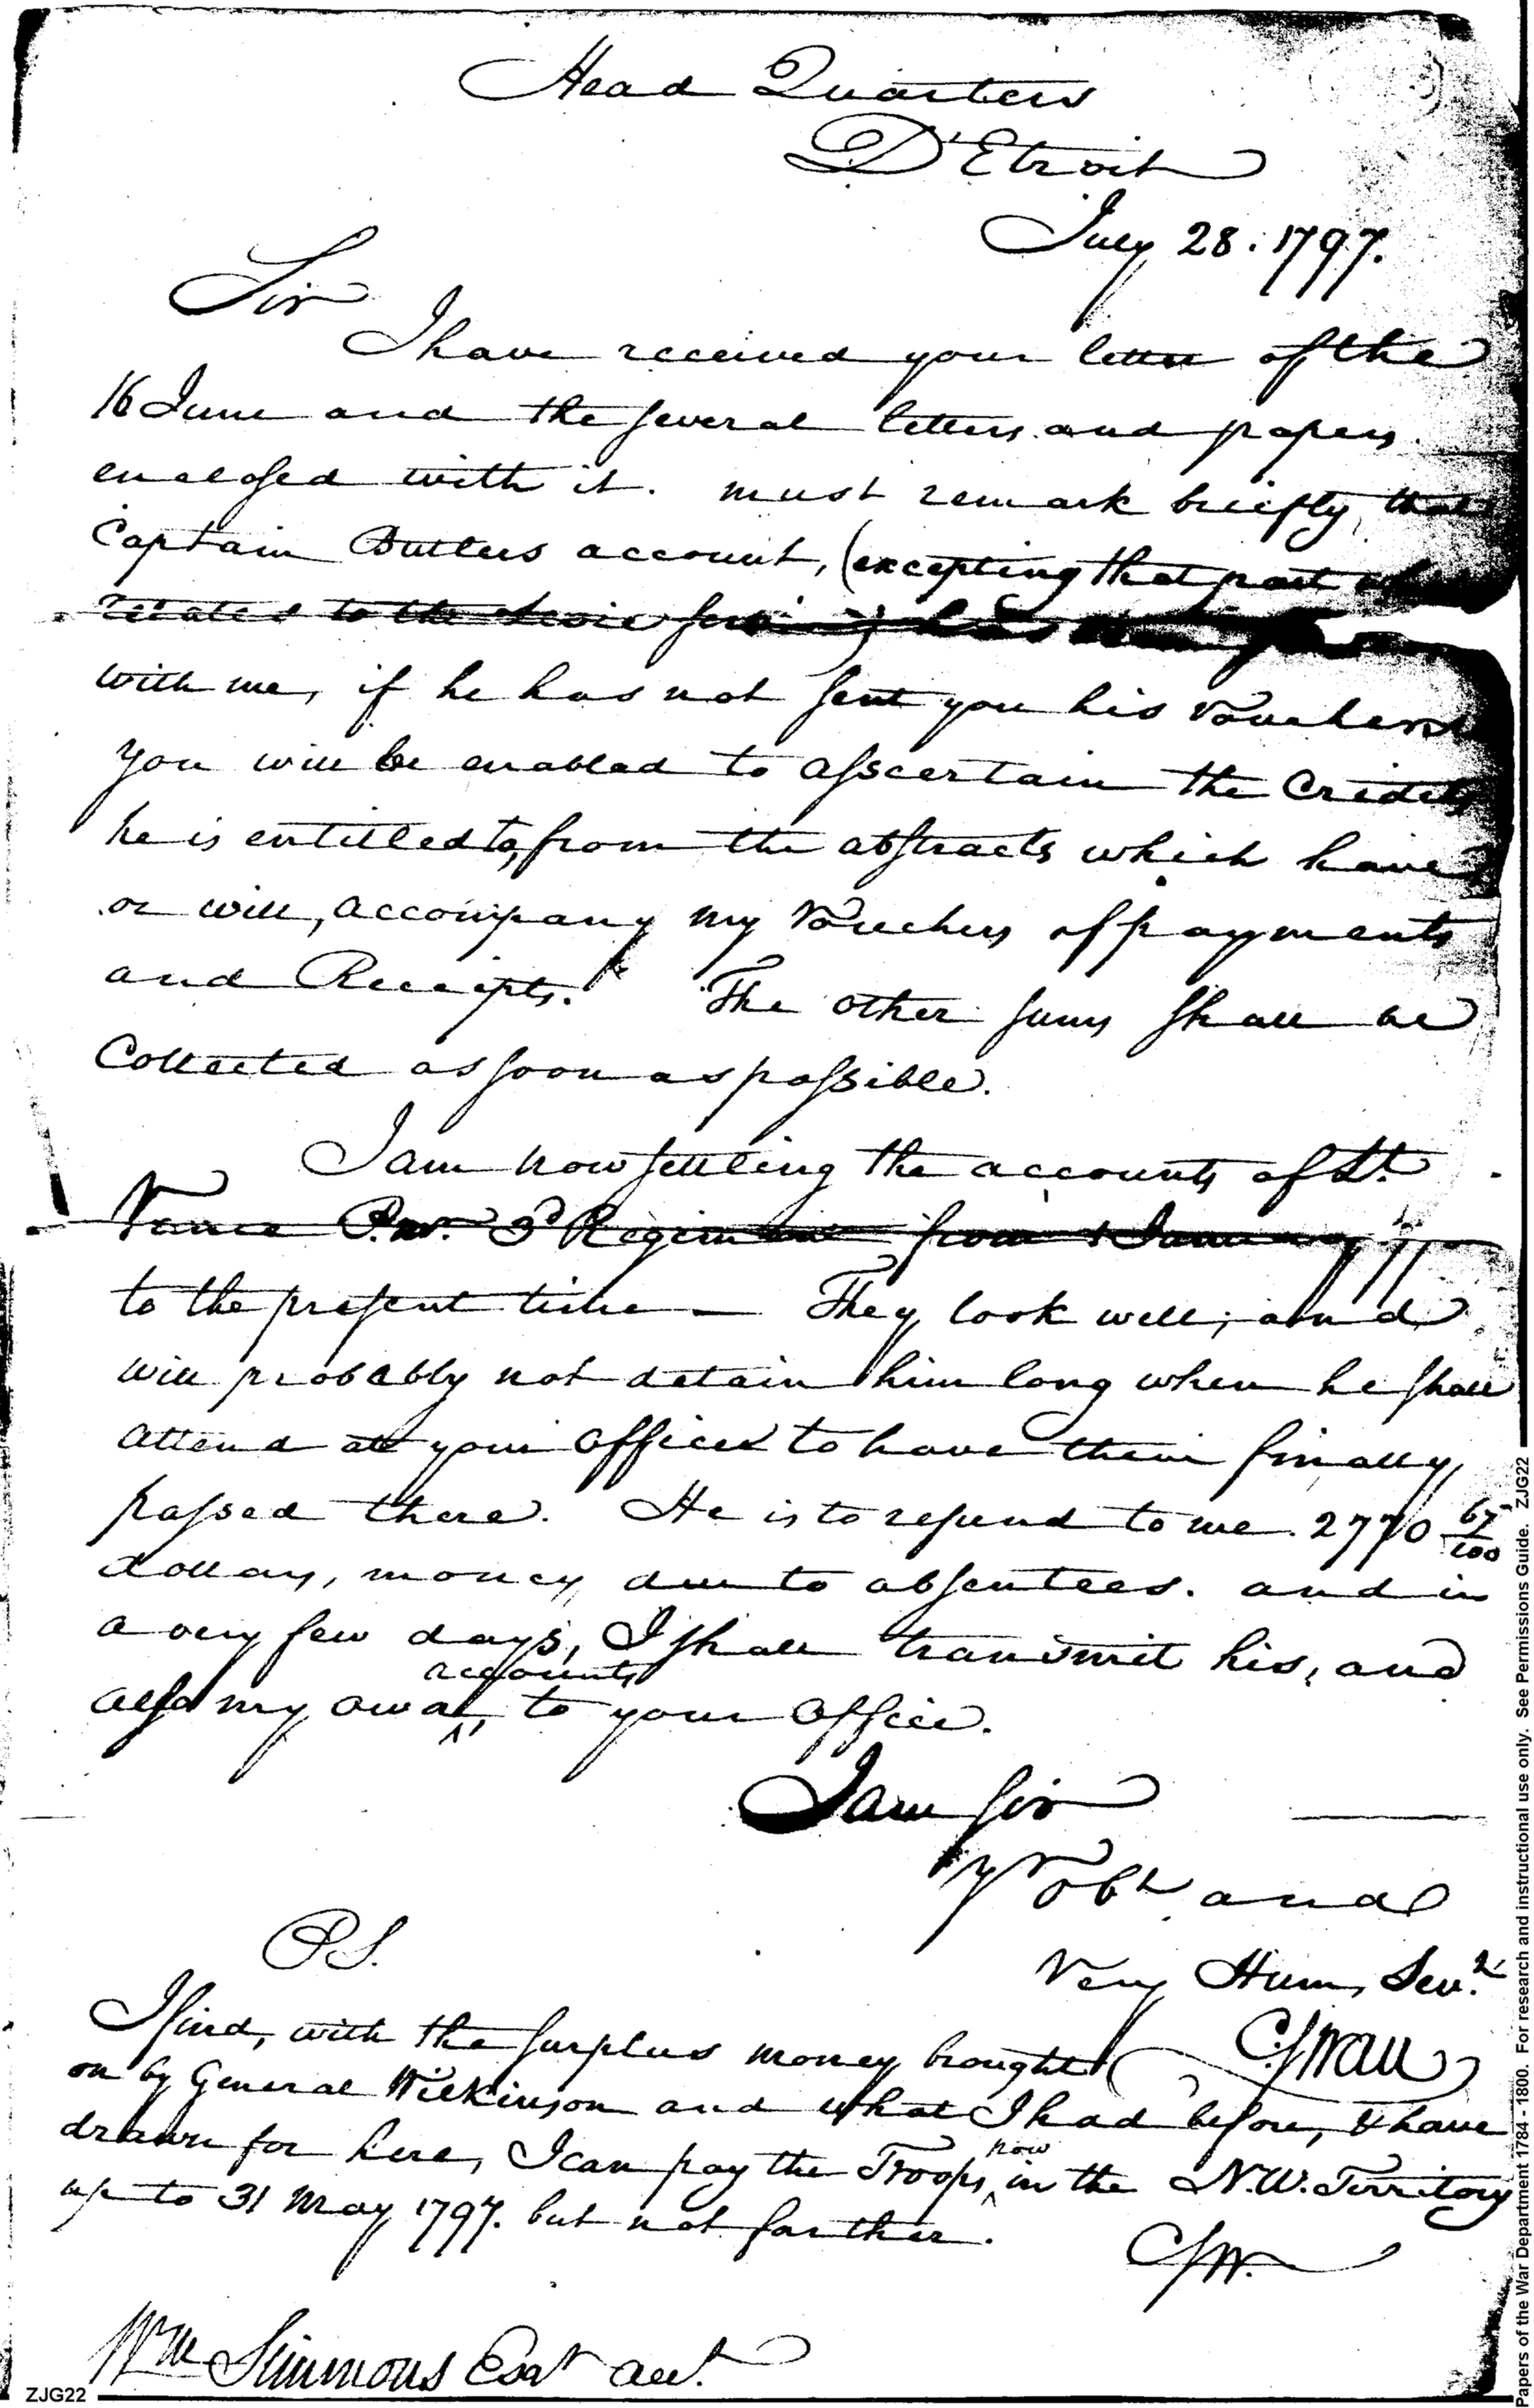 Head Quarters
D'Etroit
July 28. 1797.
Sir
I have received your letter of the
16 June and the several letters and papers
enclosed with it. must remark briefly, that
Captain Butlers account, (excepting that part
related to the has
with me, if he has not sent you his Vouchers
you will be enabled to ascertain the Credits
he is entitled to, from the abstracts which have
or will, accompany my Vouchers of payments
and Receipts. The other sums shall be
Collected as soon as possible.
I am now settling the accounts of Lt.
Vance P.Mr. 3d Regiment from 1 January
to the present time — They look well, and
will probably not detain him long when he shall
attend at your office to have them finally
passed there. He is to refund to me 2770 67/100
dollars, money due to absentees. and in
a very few days, I shall transmit his, and
accounts
also my own ^, to your office.
I am Sir
Yr Obt and
Very Hum, Servt
C Swan
P.S.
I find, with the surplus money brought
on by General Wilkinson and what I had before, & have
now
drawn for here, I can pay the Troops ^ in the N.W. Territory
up to 31 May 1797. but not farther.
CSW.
Wm Simmons Esqr acct.
ZJG22
Papers of the War Department 1784 - 1800. For research and instructional use only. See Permissions Guide. ZJG22